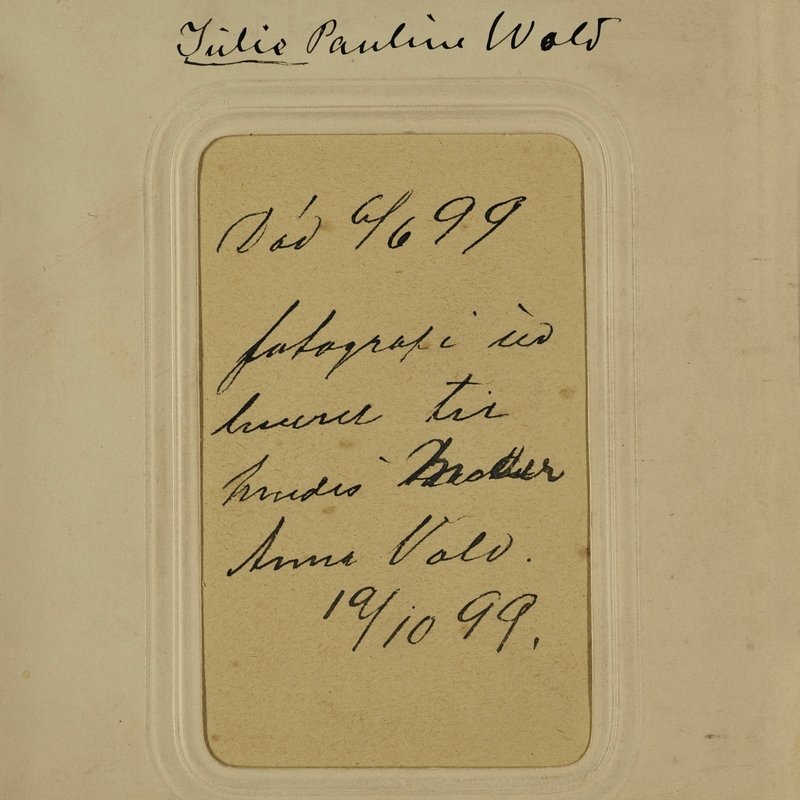 Julie Pauline Wold
Död 6/6 99
fotografi ud
leveret til
hendes Moder
Anna Vold.
19/10 99.